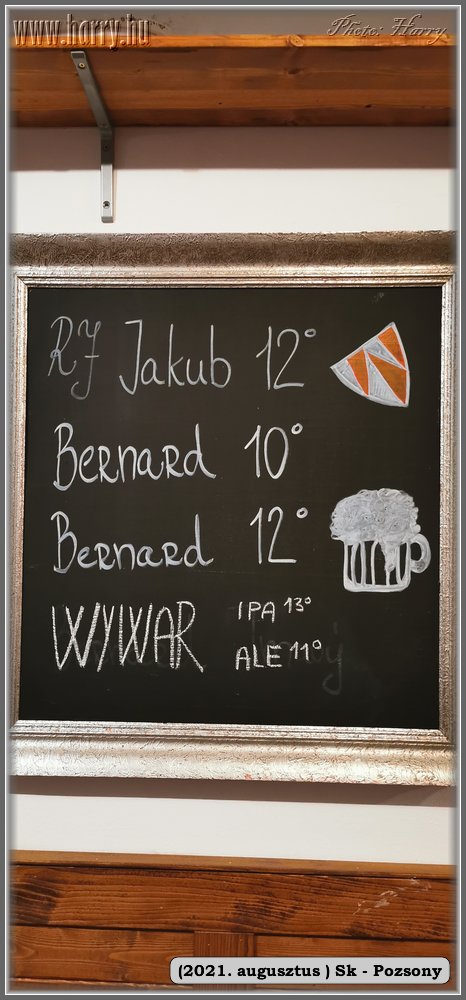 www.horry.hu
Photo: Horry
RJ Jakub 12°
Bernard 10°
Bernard 12°
WYWAR IPA 13°
ALE 11°
(2021. augusztus ) Sk - Pozsony